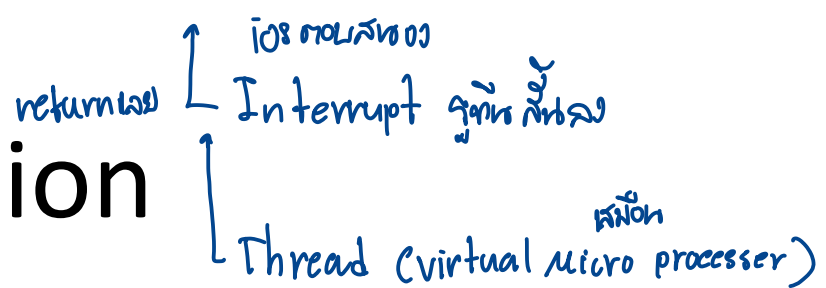 ios ตอบสนอง
returnเลย Interrupt รูทีนสั้นลง
ion
เสมือน
Thread (virtual micro processer)